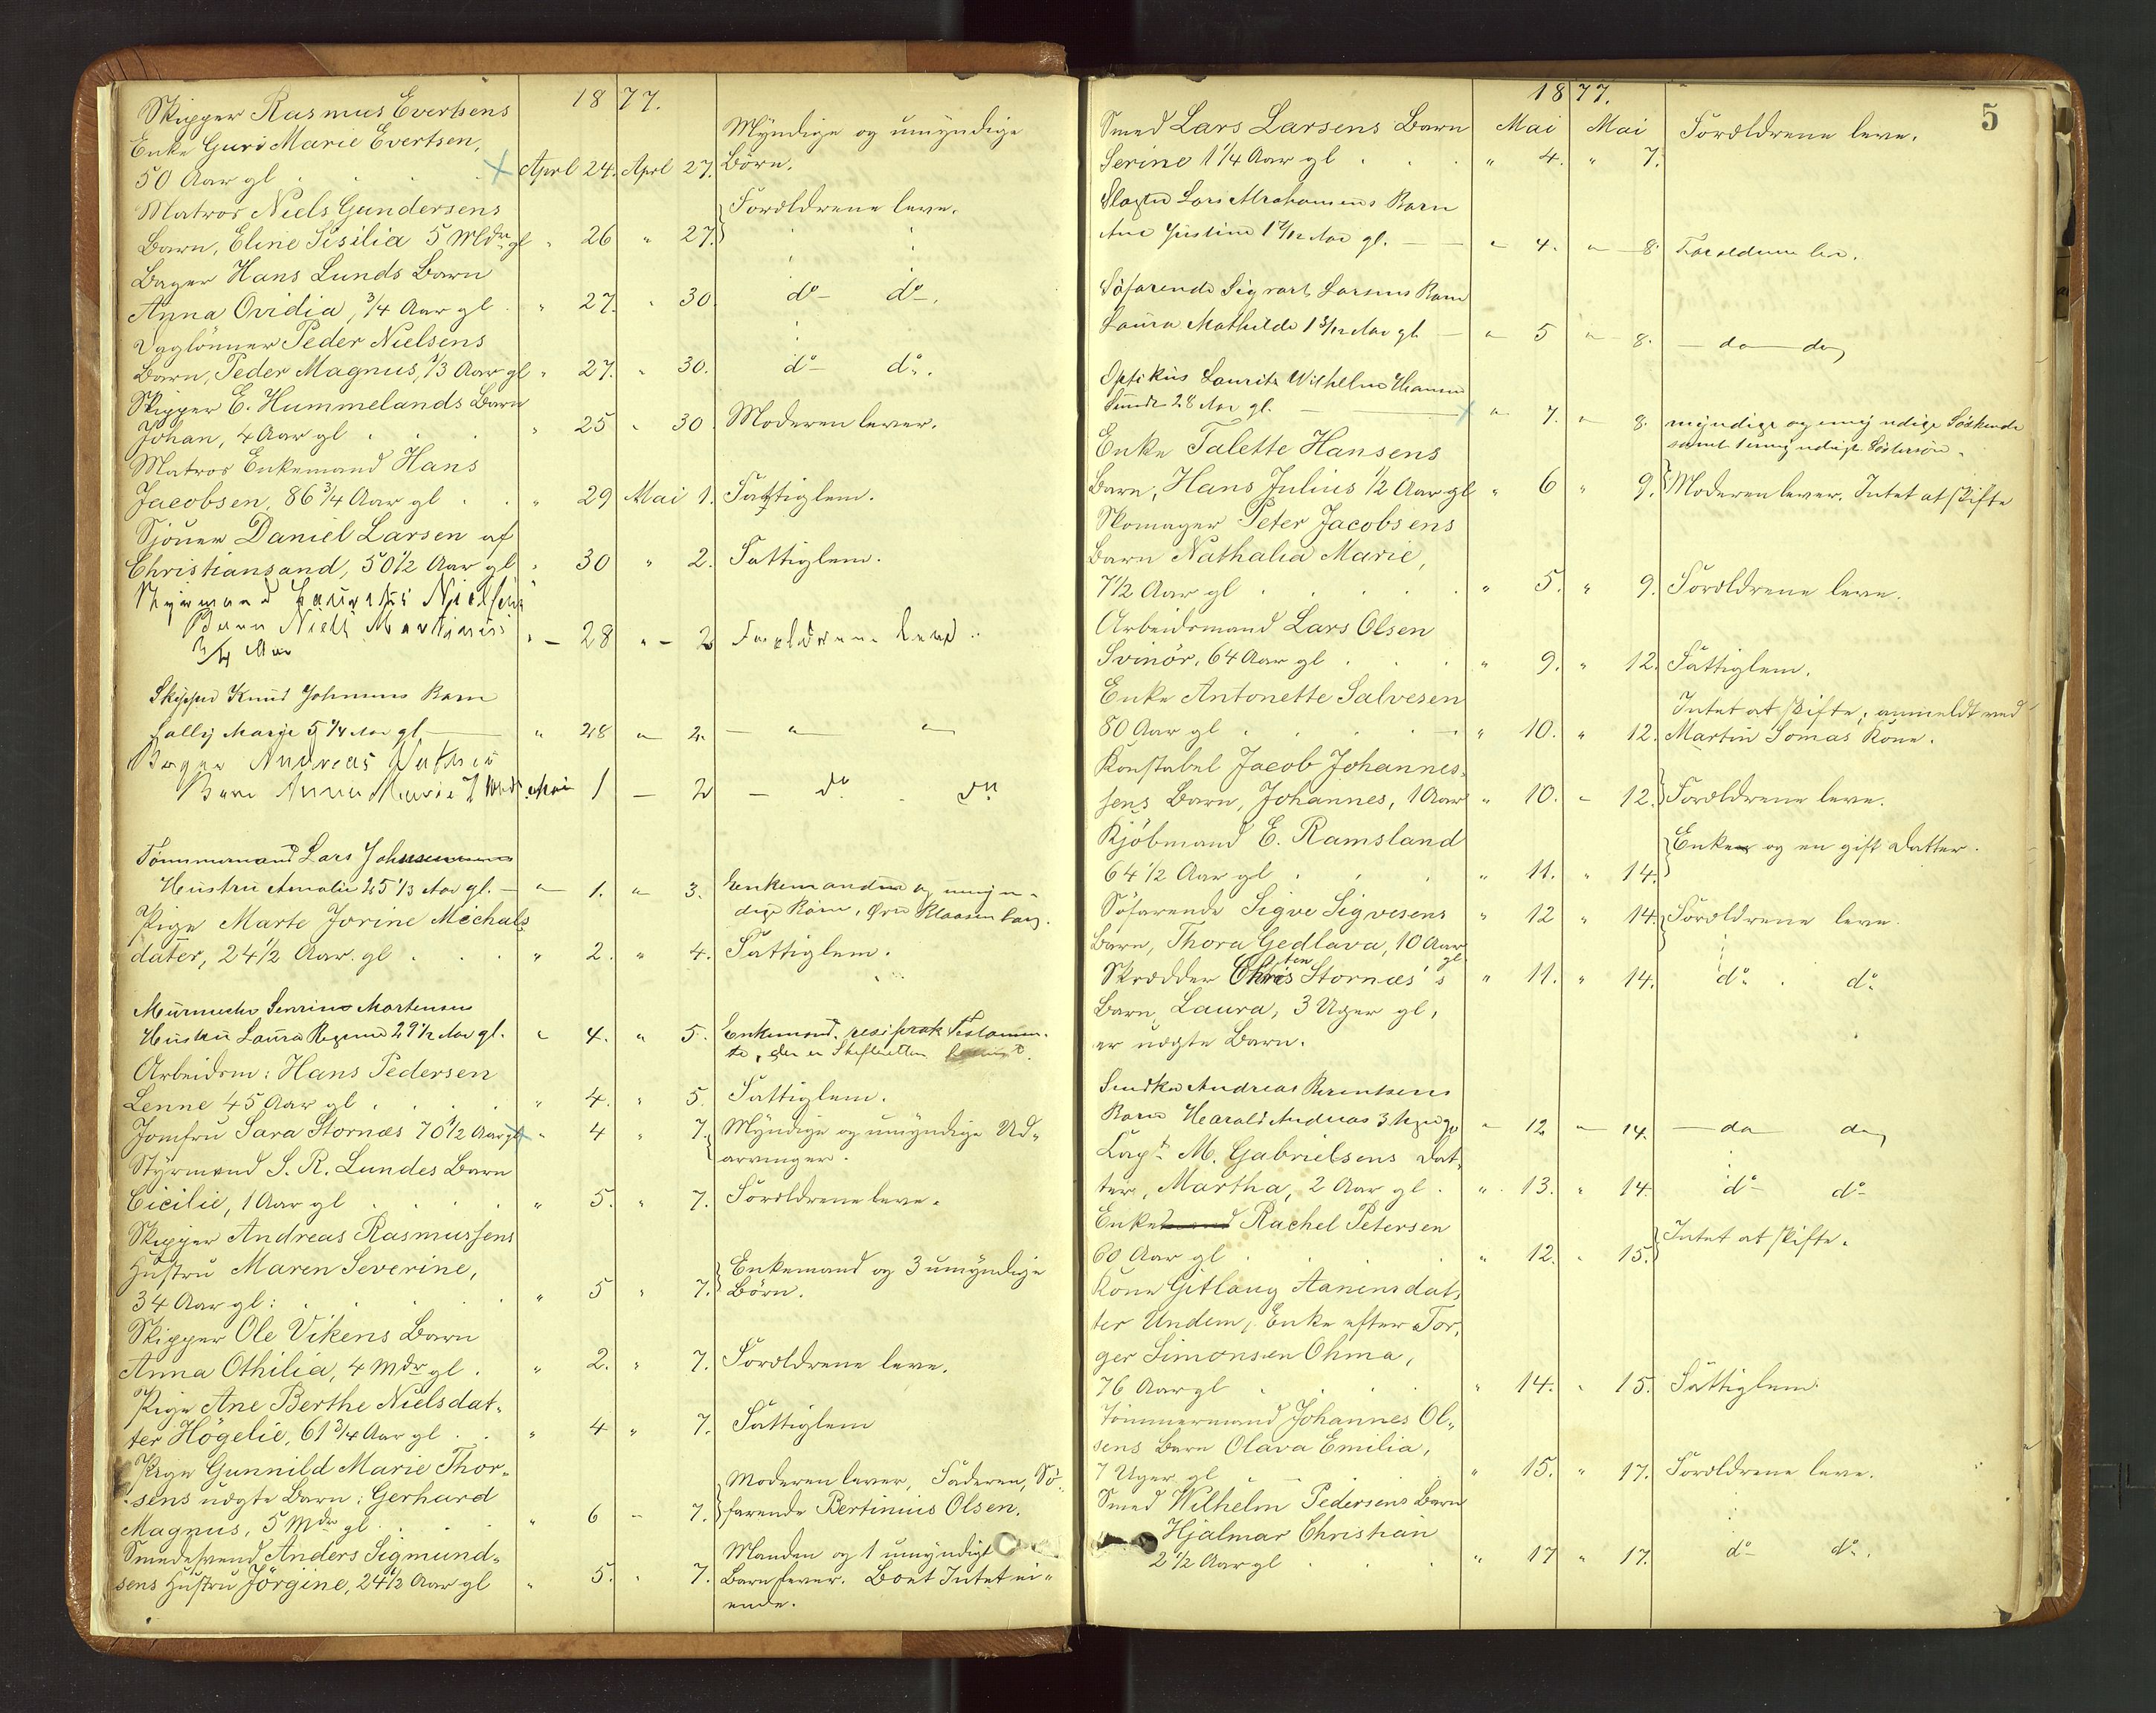 1877.
Skipper Rasmus Evertsens
Enke Guri Marie Evertsen,
50 Aar gl . . . X Aprl 24. Aprl 27. Myndige og umyndige Börn.
Matros Niels Gundersens
Barn, Eline Sisilia 5 Mdr gl " 26 " 27. Forældrene leve.
Bager Hans Lunds Barn
Anna Ovidia, 3/4 Aar gl . " 27. " 30. do do.
Daglönner Peder Nielsens
Barn, Peder Magnus, 1/3 Aar gl " 27. " 30. do do.
Skipper E. Hummelands Barn
Johan, 4 Aar gl . . . " 25 " 30. Moderen lever.
Matros Enkemand Hans
Jacobsen, 86 3/4 Aar gl . . " 29 Mai 1. Fattiglem.
Sjöuer Daniel Larsen af
Christiansand, 50 1/2 Aar gl " 30 " 2. Fattiglem.
Styrmand Lauritz Nielsens
Barn Niels Martinius
3/4 Aar " - 28 " - 2 Forældrene leve.
Skipper Knud Johnsens Barn
Sally Marje 5 1/4 Aar gl " 28 " 2. — " "
Bager Andreas
Barn Anna Marie 7 Mdr Mai 1 — 2 — do do
Tömmermand Lars
Hustru Amalie 25 1/3 Aar gl. — " 1. " 3. Enkemanden og umyn-
dige Börn, Övre Klaasenborg.
Pige Marte Jorine Michals
dater, 24 1/2 Aar. gl . . . " 2. " 4. Fattiglem.
Murmester Senrino Mortensens
Hustru Laura Regine 29 1/2 Aar gl. " 4. " 5. Enkemand, resiprok Testamen-
te, der er Skifteretten
Arbeidsm: Hans Pedersen
Lenne 45 Aar gl . . . " 4. " 5. Fattiglem.
Jomfru Sara Stornæs 70 1/2 Aar gl X " 4 " 7. Myndige og umyndige Ud-
arvinger.
Styrmand S. R. Lundes Barn
Cicilie, 1 Aar gl . . . " 5. " 7. Forældrene leve.
Skipper Andreas Rasmussens
Hustru Maren Severine,
34 Aar gl: . . . " 5 " 7. Enkemand og 3 umyndige Börn.
Skipper Ole Vikens Barn
Anna Othilia, 4 Mdr gl . " 2. " 7. Forældrene leve.
Pige Ane Berthe Nielsdat-
ter Högelie, 61 3/4 Aar gl . . " 4 " 7. Fattiglem
Pige Gunnild Marie Thor-
sens uægte Barn: Gerhard
Magnus, 5 Mdr gl . . . " 6 " 7. Moderen lever, Faderen, Sö-
farende Bertinius Olsen.
Smedesvend Anders Sigmund-
sens Hustru Jörgine, 24 1/2 Aar gl " 5. " 7. Manden og 1 umyndigt
Barn lever. Boet Intet ei-
ende.
5
1877.
Smed Lars Larsens Barn Mai Mai Forældrene leve.
Serine 1 1/4 Aar gl . . . " 4. " 7.
Slagter Lars Abrahamsens Barn
Ane Justine 1 7/12 Aar gl. — — " 4. " 8 Forældrene lev.
Söfarende Sigvart Larsens Barn
Laura Mathilde 1 3/12 Aar gl — " 5 " 8. — do do
Optikus Lauritz Wilhelm Hansen
Sunde 28 Aar gl. — X " 7. " 8. myndige og umyndige Söskende
samt 1 umyndig Söstersön.
Enke Talette Hansens
Barn, Hans Julius 1/2 Aar gl " 6 " 9. Moderen lever. Intet at skifte
Skomager Peter Jacobsens
Barn Nathalia Marie,
7 1/2 Aar gl . . . . " 5. " 9. Forældrene leve.
Arbeidsmand Lars Olsen
Svinör, 64 Aar gl . . . " 9. " 12. Fattiglem.
Enke Antonette Salvesen
80 Aar gl . . . . " 10. " 12. Intet at skifte, anmeldt ved
Martin Tomas Kone.
Konstabel Jacob Johannes-
sens Barn, Johannes, 1 Aar " 10. " 12. Forældrene leve.
Kjöbmand E. Ramsland
64 1/2 Aar gl . . . " 11. " 14. Enke og en gift Datter.
Söfarende Sigve Sigvesens " 12 " 14. Forældrene leve.
Barn, Thora Gedlava, 10 Aar gl
Skrædder Christen Stornæs's " 11. " 14. do. do.
Barn, Laura, 3 Uger gl,
er uægte Barn.
Snedker Andreas Berentsens
Barn Harald Andreas 3 Uger gl " 12 " 14. — do do
Capt. M. Gabrielsens Dat-
ter, Martha, 2 Aar gl . " 13. " 14 do do
Enke Rachel Petersen
60 Aar gl . . . " 12. " 15. Intet at skifte.
Kone Gitlaug Aanensdat-
ter Undem, Enke efter Tor-
ger Simonsen Ohma,
76 Aar gl . . . " 14. " 15. Fattiglem.
Tömmermand Johannes Ol-
sens Barn Olava Emilia,
7 Uger gl . . . " 15. " 17. Forældrene leve.
Smed Wilhelm Pedersens Barn
Hjalmar Christian
2 1/2 Aar gl . . . " 17 " 17. do do.